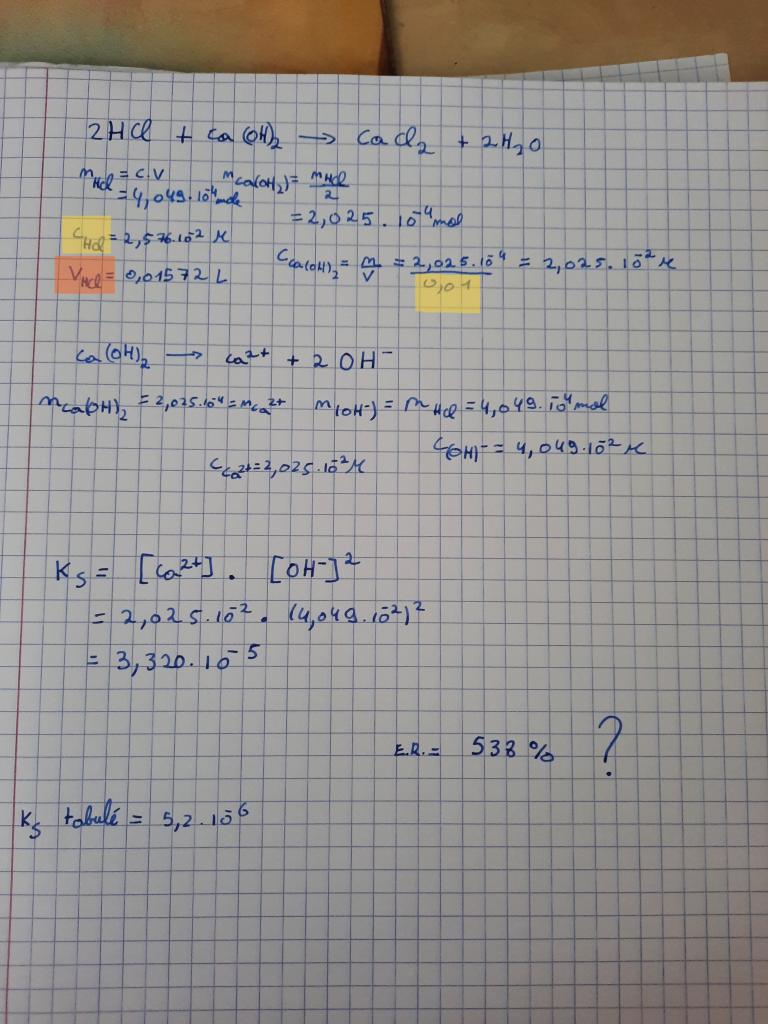 2HCl + Ca(OH)₂ → CaCl₂ + 2H₂O
nHCl = C.V nCa(OH)₂ = nHCl/2
= 4,049.10⁻⁴ mole = 2,025.10⁻⁴ mol
CHCl = 2,576.10⁻² M
CCa(OH)₂ = n/V = 2,025.10⁻⁴/0,01 = 2,025.10⁻² M
VHCl = 0,01572 L
Ca(OH)₂ → Ca²⁺ + 2 OH⁻
nCa(OH)₂ = 2,025.10⁻⁴ = nCa²⁺ n(OH⁻) = nHCl = 4,049.10⁻⁴ mol
C(OH)⁻ = 4,049.10⁻² M
CCa²⁺ = 2,025.10⁻² M
KS = [Ca²⁺] . [OH⁻]²
= 2,025.10⁻² . (4,049.10⁻²)²
= 3,320.10⁻⁵
E.R. = 538 % ?
KS tabulé = 5,2.10⁻⁶